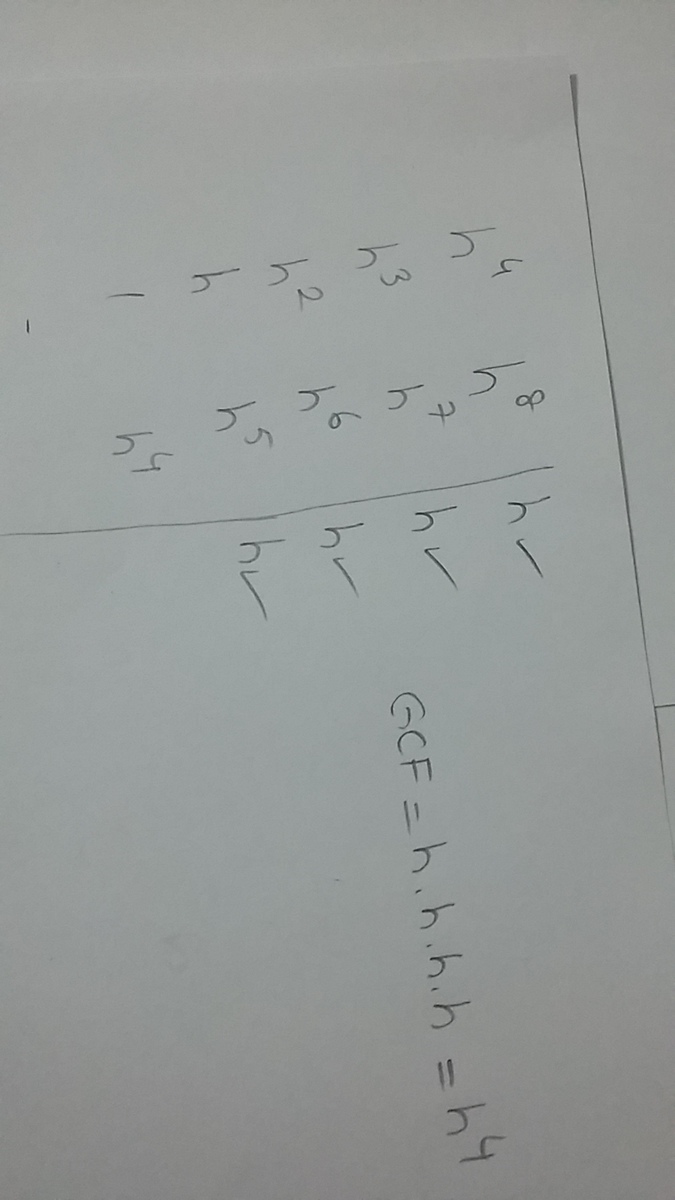 h⁴ h⁸ h✓
h³ h⁷ h✓
h² h⁶ h✓
h h⁵ h✓
1 h⁴
GCF = h.h.h.h = h⁴